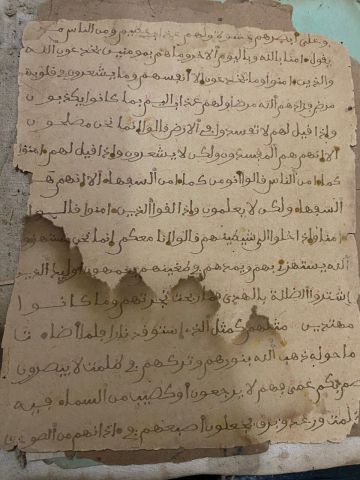 وعلى أبصرهم غشوة ولهم عذاب عظيم ومن الناس من
يقول ءامنا بالله وباليوم الاخر وما هم بمومنين يخدعون الله
والذين ءامنوا وما يخدعون الا أنفسهم وما يشعرون في قلوبهم
مرض فزادهم الله مرضا ولهم عذاب اليم بما كانوا يكذبون
وإذا قيل لهم لا تفسدوا في الارض قالوا إنما نحن مصلحون
ألا إنهم هم المفسدون ولكن لا يشعرون وإذا قيل لهم ءامنوا
كما ءامن الناس قالوا أنومن كما ءامن السفهاء ألا إنهم هم
السفهاء ولكن لا يعلمون وإذا لقوا الذين ءامنوا قالوا
ءامنا وإذا خلوا إلى شيطينهم قالوا إنا معكم إنما نحن مستهزءون
الله يستهزئ بهم ويمدهم في طغينهم يعمهون أوليك الذين
اشتروا الضللة بالهدى فما ربحت تجرتهم وما كانوا
مهتدين مثلهم كمثل الذي استوقد نارا فلما أضاءت
ما حوله ذهب الله بنورهم وتركهم في ظلمت لا يبصرون
صم بكم عمي فهم لا يرجعون أو كصيب من السماء فيه
ظلمت ورعد وبرق يجعلون أصبعهم في ءاذانهم من الصوعق